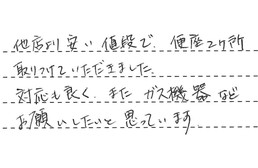 他店より安い値段で、便座2ヶ所
取りつけていただきました。
対応も良く、また ガス機器など
お願いしたいと思っています。